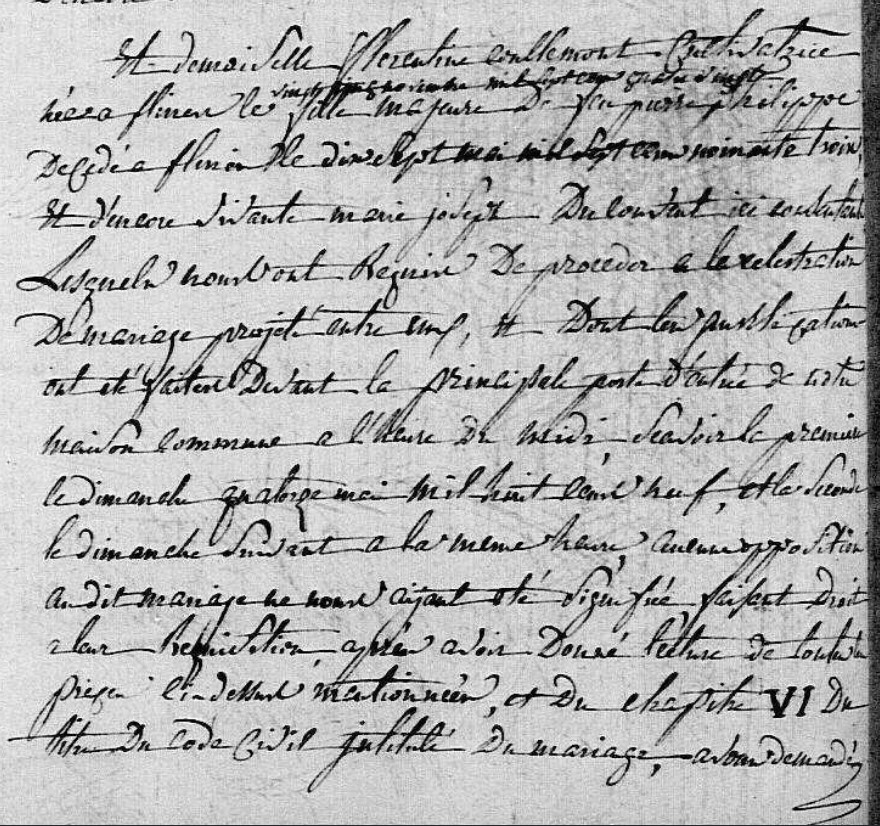 Et demoiselle florentine coullemont Cultivatrice
vingt cinq novembre mil sept cens quatre vingt
néeza flinen le fille majeure De feu pierre philippe
Decédé a flinon le dix sept mai mil sept cens nonante trois,
Et d'encore vivante marie joseph Ducoustent ici consentante
Lesquels nous ont Requis De proceder a la celebration
De mariage projeté entre eux, et Dont les publications
ont eté faites Devant la principale porte d'entrée de notre
maison commune a l'heure De midi Scavoir la premiere
le dimanche quatorze mai mil huit cens neuf, et la Seconde
le dimanche Suivant a la meme heure, aucune opposition
au dit mariage ne nous aijant eté Signifiée faisant Droit
a leur Requisition après avoir Donné lecture de toutes les
pieces ci dessus mentionnées, et Du chapitre VI Du
titre Du code Civil intitulé Du mariage, avons demandé